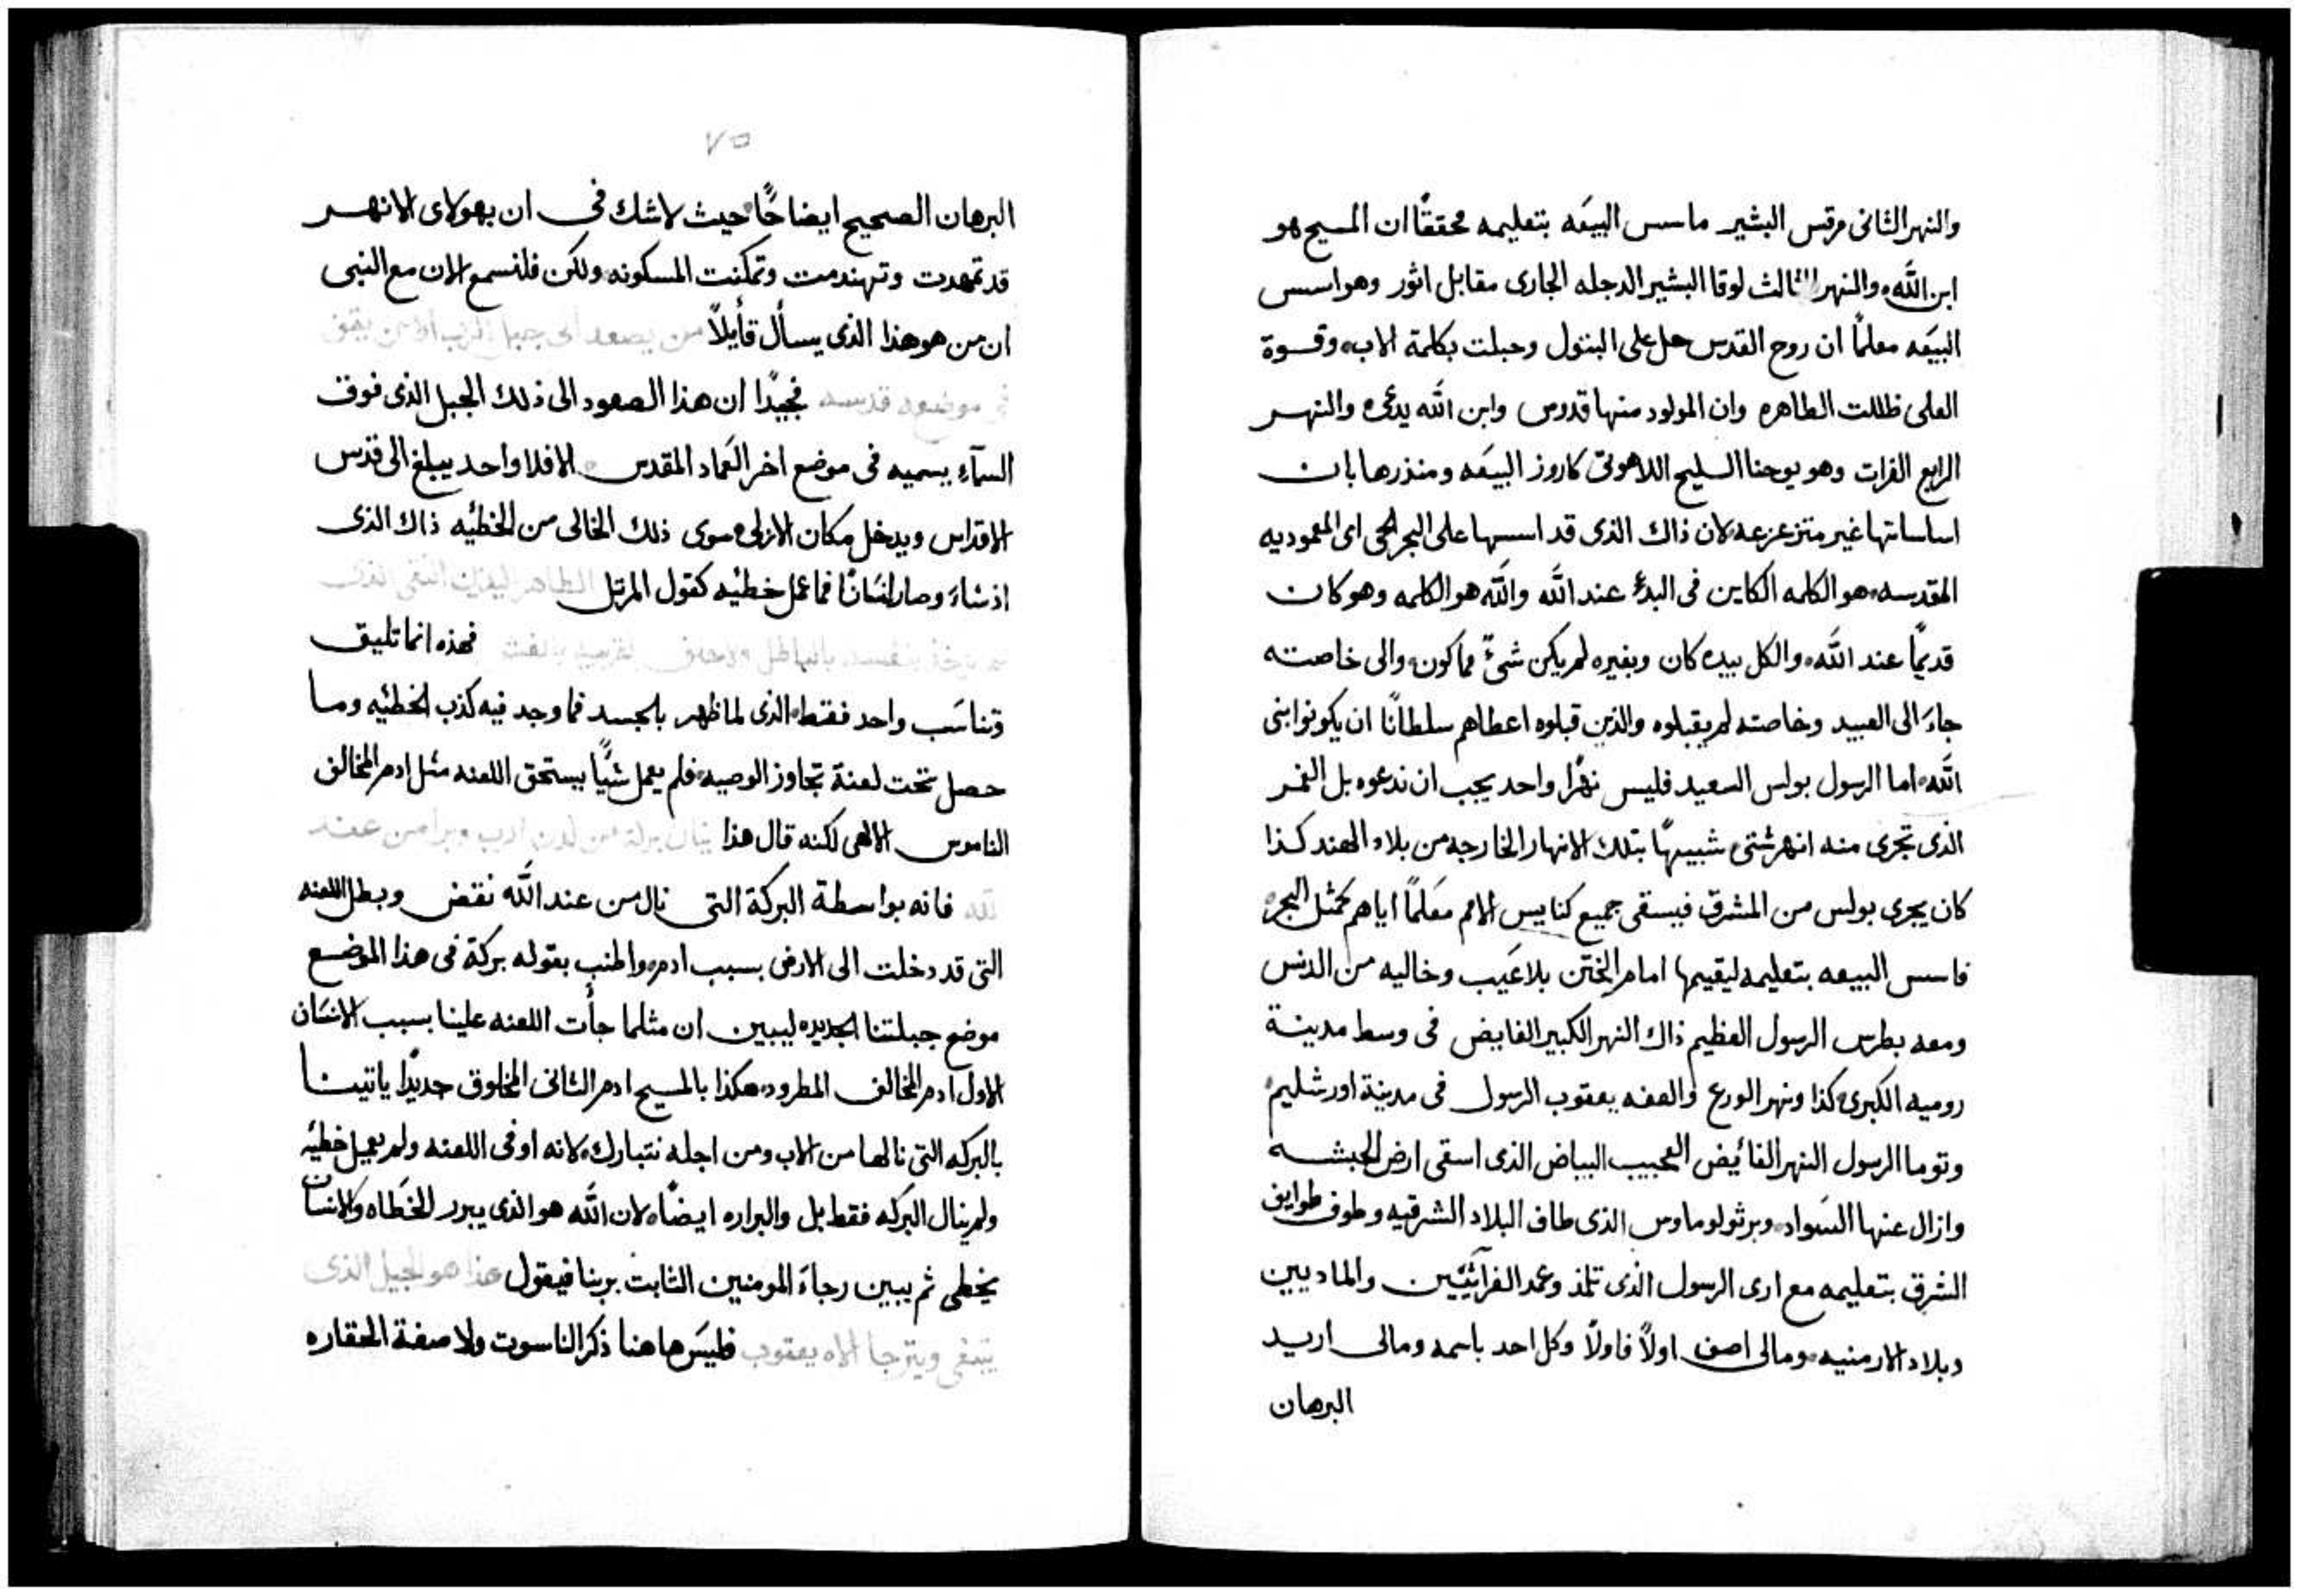 والنهر الثانى مرقس البشير ماسس البيعَه بتعليمه محققًا ان المسيح هو
ابن اللَّه والنهر الثالث لوقا البشير الدجله الجارى مقابل اثور وهو اسس
البيعَه معلمًا ان روح القدس حل على البتول وحبلت بكلمة الاب وقــوة
العلى ظللت الطاهره وان المولود منها قدوس وابن اللَّه يدعى والنهــر
الرابع الفرات وهو يوحنا السليح اللاهوتى كاروز البيعَه ومنذرها بان
اساساتها غير متزعزعه لان ذاك الذى قد اسسها على البحر الحى اى المعموديه
المقدسه هو الكلمه الكاين فى البدء عند اللَّه واللَّه هو الكلمه وهو كان
قديمًا عند اللَّه والكل بيده كان وبغيره لم يكن شىءٌ مما كون والى خاصته
جاءَ الى العبيد وخاصته لم يقبلوه والذين قبلوه اعطاهم سلطانًا ان يكونوا بنى
اللَّه اما الرسول بولس السعيد فليس نهرًا واحد يجب ان ندعوه بل الغمر
الذى تجرى منه انهر شتى شبيهًا بتلك الانهار الخارجه من بلاد الهند كـذا
كان يجرى بولس من المشرق فيسقى جميع كنايس الامم معَلمًا اياهم كمثل البحر
فاسس البيعه بتعليمه ليقيمها امام الختن بلا عَيب وخاليه من الدنس
ومعه بطرس الرسول العظيم ذاك النهر الكبير الفايض فى وسط مدينة
روميه الكبرى كذا ونهر الورع والعفه يعقوب الرسول فى مدينة اورشليم
وتوما الرسول النهر الفائيض العجيب البياض الذى اسقى ارض الحبشــه
وازال عنها السَواد وبرثولوماوس الذى طاف البلاد الشرقيه وطوف طوايف
الشرق بتعليمه مع ادى الرسول الذى تلمذ وعمد الفراثيين والماديين
وبلاد الارمنيه ومالى اصف اولاً فاولاً وكل احد باسمه ومالى اريد
البرهان
٧٥
البرهان الصحيح ايضاحًا حيث لا شك فى ان بهولاى الانهــر
قد تمهدت وتهندمت وتمكنت المسكونه ولكن فلنسمع الان مع النبى
ان من هو هذا الذى يسأل قأيلاً من يصعد الى جبل الرب او من يقف
فى موضعه قدسه فجيدًا ان هذا الصعود الى ذلك الجبل الذى فوق
السمآءِ يسميه فى موضع اخر العَماد المقدس الا فلا واحد يبلغ الى قدس
الاقداس ويدخل مكان الازلى سوى ذلك الخالى من الخطئيه ذاك الذى
اذ شاءَ وصار انسَانًا فما عمل خطئيه كقول المرتل الطاهر اليدين النقى الذى
لم ياخذ بنفسه بالباطل ولا حلف لقريبه بالغش فهذه انما تليق
وتناسَب واحد فقط الذى لما ظهر بالجسد فما وجد فيه كذب الخطئيه ومـا
حصل تحت لعنة تجاوز الوصيه فلم يعمل شيئًا يستحق اللعنه مثل ادم المخالف
الناموس الالهى لكنه قال هذا ينال بركة من لدن الرب وبرا من عند
اللَّه فانه بواسطة البركة التى نال من عند اللَّه نقض وبطل اللعنه
التى قد دخلت الى الارض بسبب ادم واطنب بقوله بركة فى هذا الموضع
موضع جبلتنا الجديده ليبين ان مثلما جأت اللعنه علينا بسبب الانسَان
الاول ادم المخالف المطرود هكذا بالمسيح ادم الثانى المخلوق جديدًا ياتينـا
بالبركه التى نالها من الاب ومن اجله نتبارك لانه اوفى اللعنه ولم يعمل خطئيه
ولم ينال البركه فقط بل والبراره ايضًا لان اللَّه هو الذى يبرر الخَطاه وكلانسَان
يخطى ثم يبين رجاءَ المومنين الثابت بربنا فيقول هذا هو الجيل الذى
يبتغى ويترجا الاه يعقوب فليسَ هاهنا ذكر الناسوت ولا صفة الحقاره